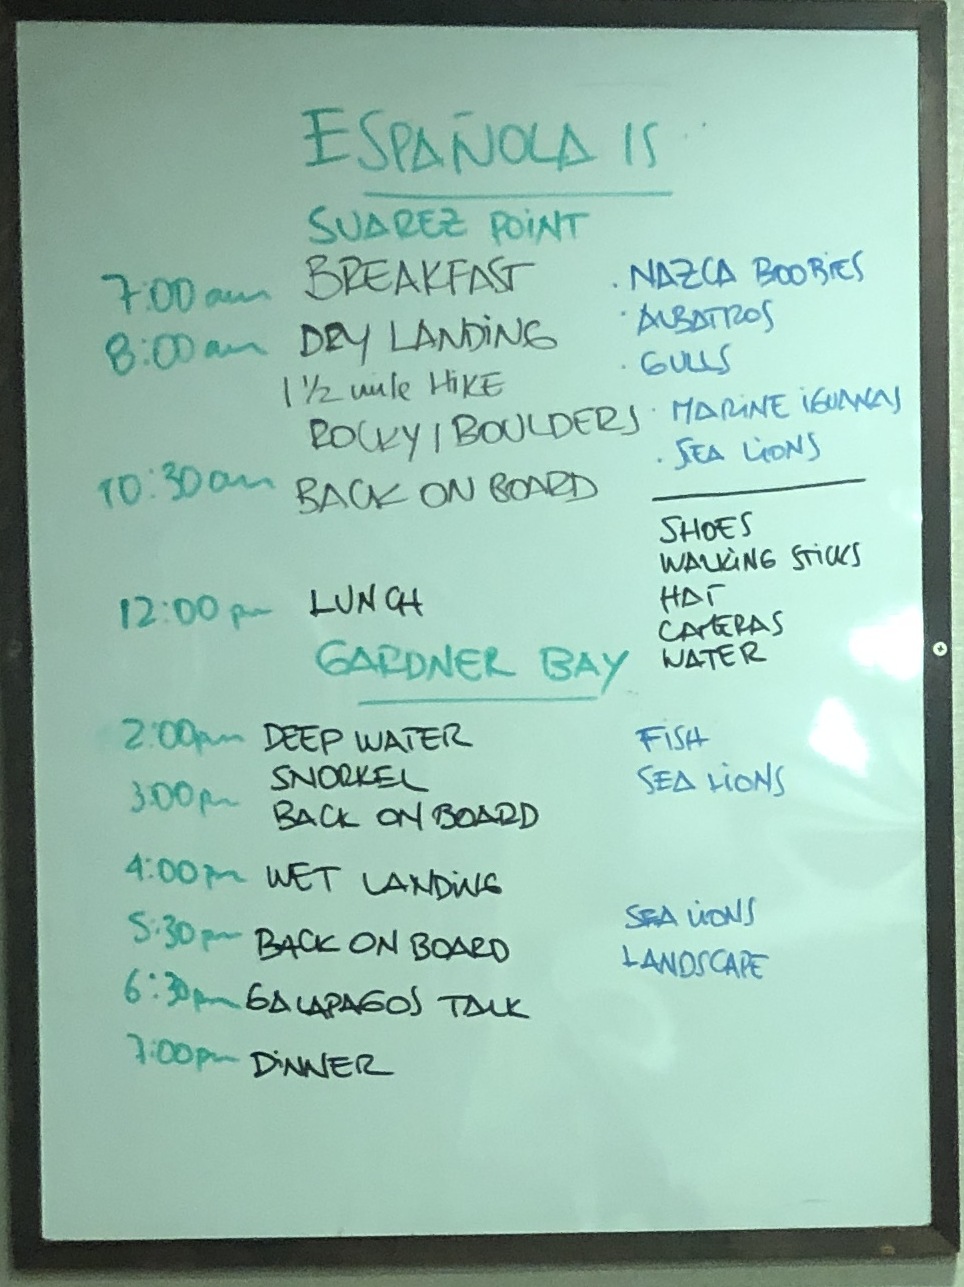 ESPAÑOLA IS
SUAREZ POINT
7:00 am BREAKFAST . NAZCA BOOBIES
8:00 am DRY LANDING . ALBATROS
1 1/2 mile HIKE . GULLS
ROCKY / BOULDERS . MARINE IGUANAS
. SEA LIONS
10:30 am BACK ON BOARD
SHOES
WALKING STICKS
12:00 pm LUNCH HAT
CAMERAS
GARDNER BAY WATER
2:00 pm DEEP WATER FISH
SNORKEL SEA LIONS
3:00 pm BACK ON BOARD
4:00 pm WET LANDING
SEA LIONS
5:30 pm BACK ON BOARD LANDSCAPE
6:30 pm GALAPAGOS TALK
7:00 pm DINNER